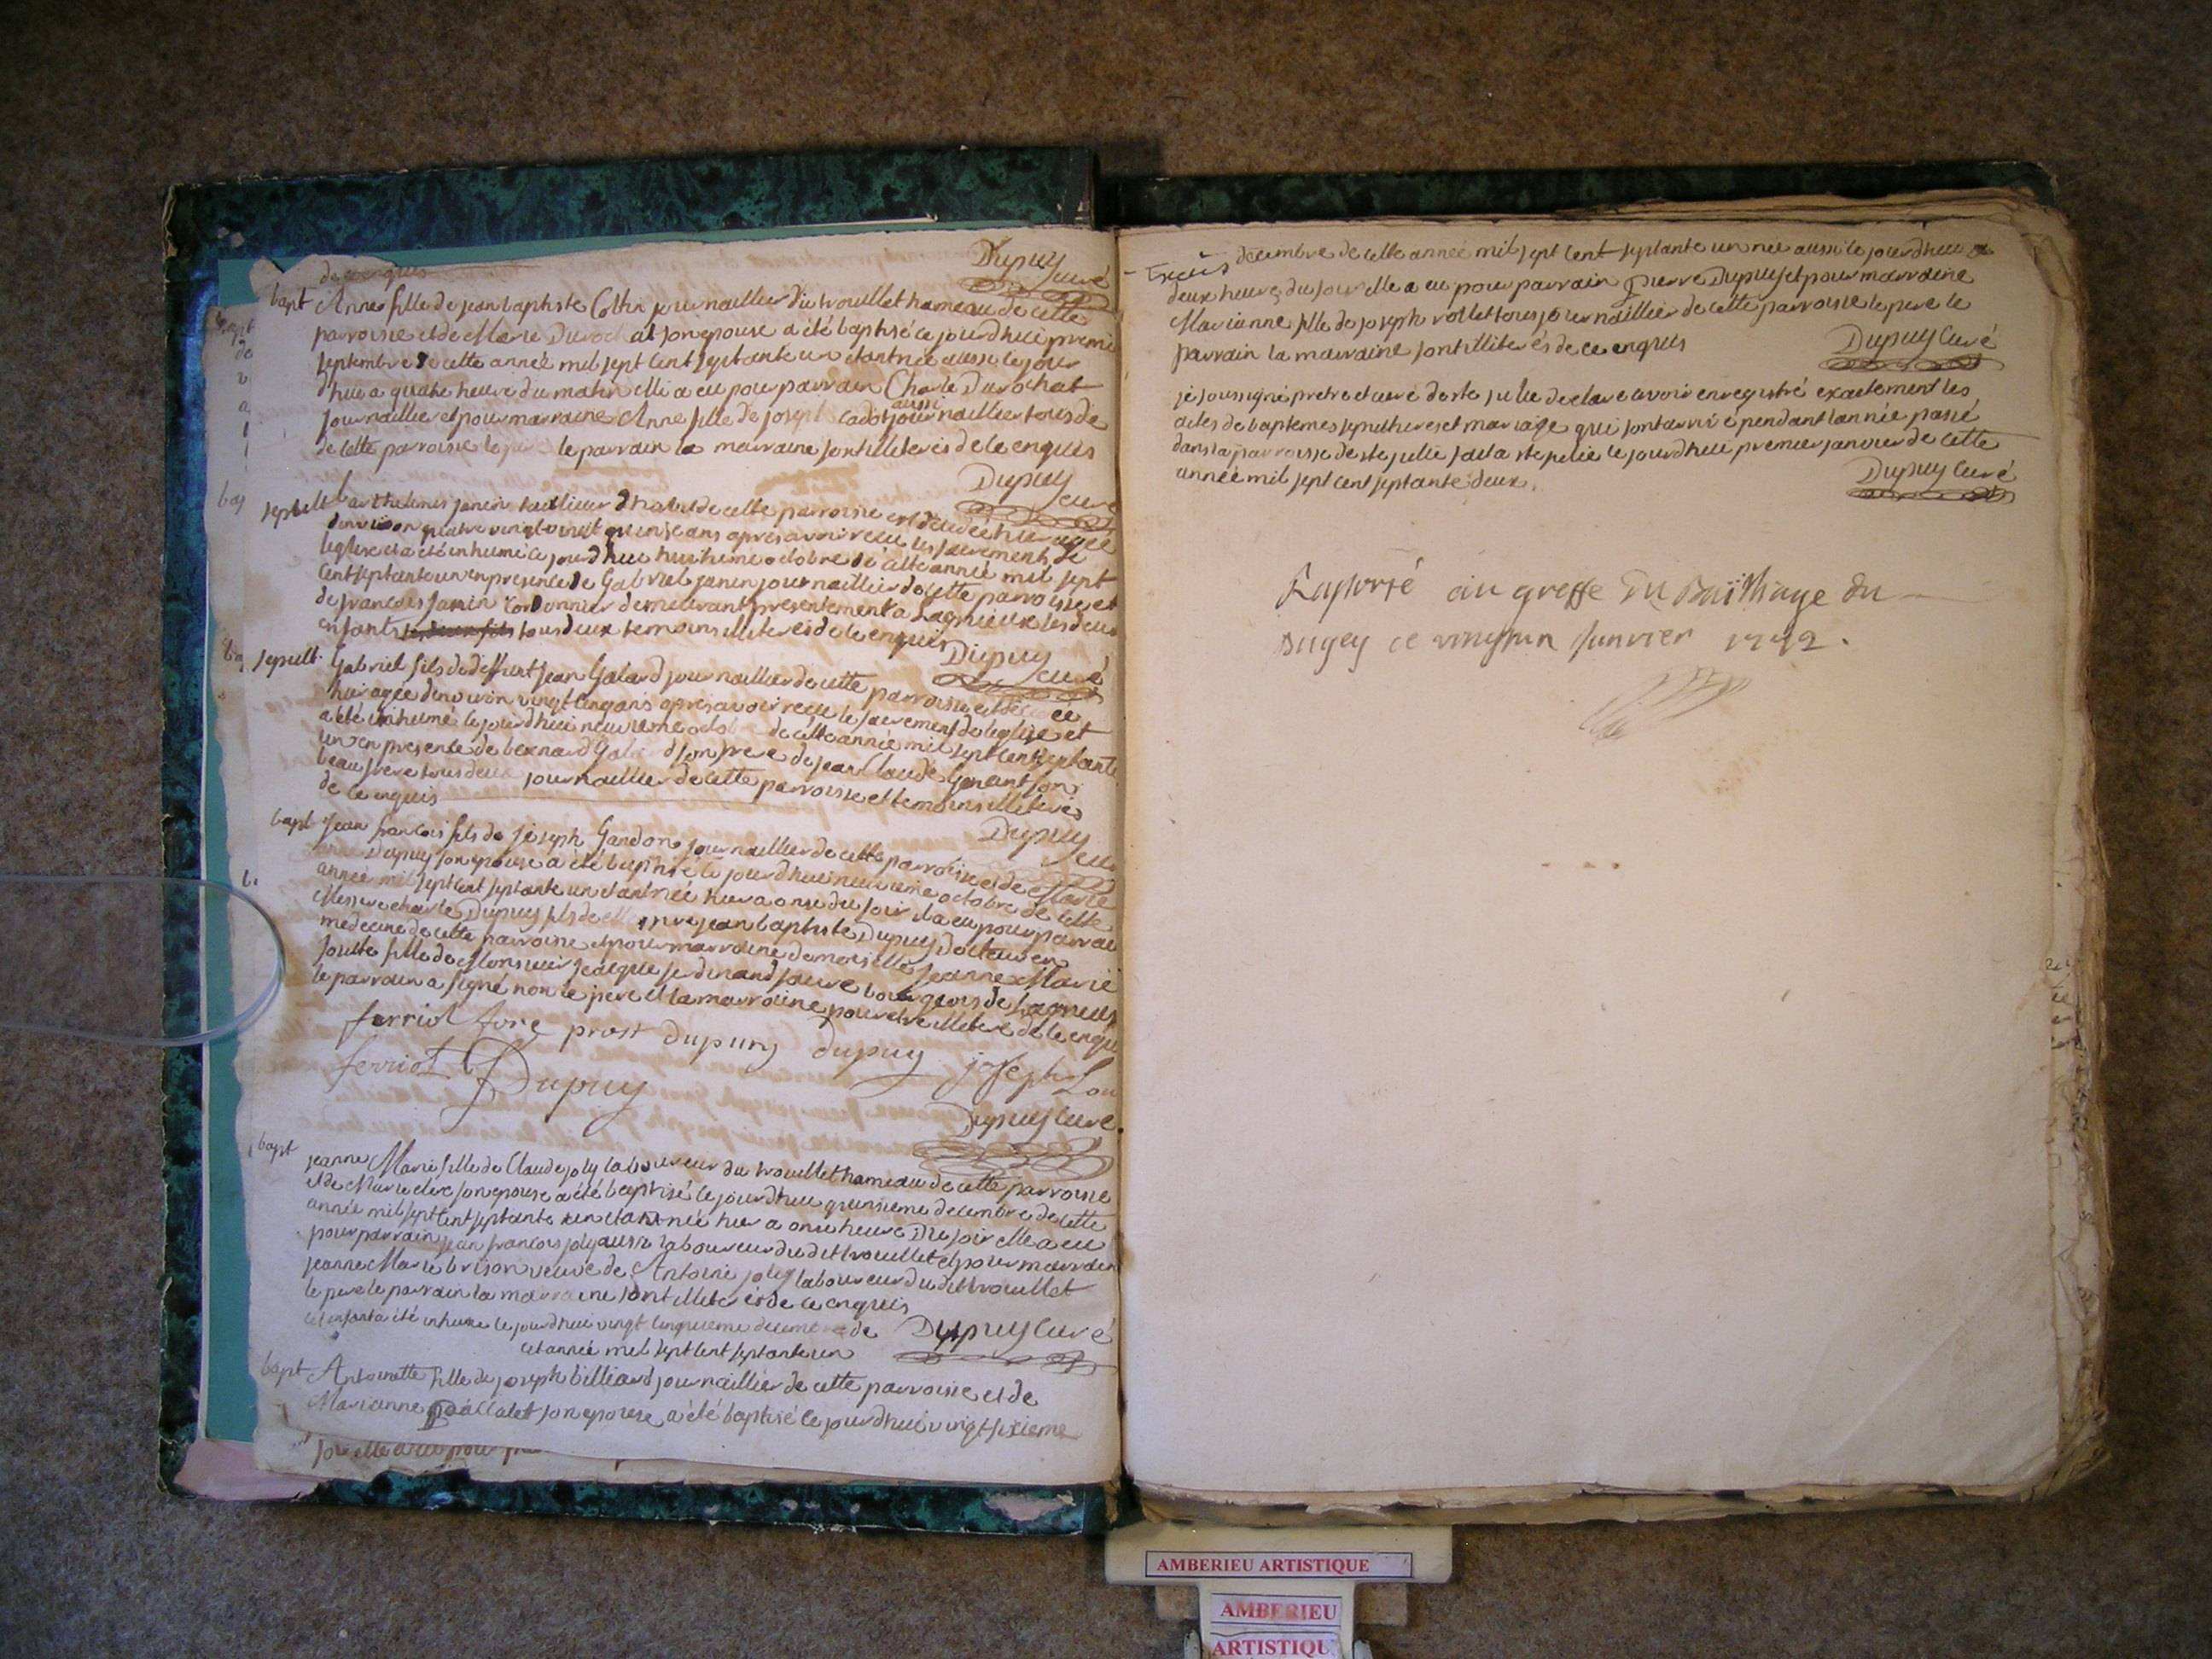 de ce enquis
Dupuy curé
bapt Anne fille de jean baptiste Collin journaillier du trouillet hameau de cette
parroisie et de Marie Durochat son epouse a été baptisé ce jourdhui premi
septembre de cette année mil sept cent septante un etant née aussi le jour
dhui a quatre heure du matin elli a eu pour parrain Charle Durochat
journaillier et pour marraine Anne fille de joseph cadot aussi journaillier tous de
de cette parroisie le pere le parrain la marraine sont illiterés de ce enquis
Dupuy curé
sepult barthelemis janin tailleur dhabit de cette parroisie est decedé hier agée
denviron quatre vingt quinze ans apres avoir recu les sacrements de
leglise et a été inhumé ce jourdhui huitieme octobre de cette année mil sept
cent septante un en presence de Gabriel janin journaillier de cette parroisse et
de francois janin cordonnier demeurant presentement a Lagnieux les deux
enfants tous deux temoins illiterés de ce enquis
Dupuy curé
sepult. Gabriel fils de deffunt jean Galard journaillier de cette parroisie est decedé
hier agée denviron vingt cinq ans apres avoir recu le sacrement de leglise et
a été inhumé le jourdhui neuvieme octobre de cette année mil sept cent septante
un en presence de bernard Galard son frere de jean Claude Genant son
beau frere tous deux journaillier de cette parroisie et temoins illiterés
de ce enquis
Dupuy curé
bapt Jean francois fils de joseph Gandon journaillier de cette parroisie et de Marie
Dupuy son epouse a été baptisé le jourdhui neuvieme octobre de cette
année mil sept cent septante un etant née hier a onse du soir il a eu pour parrain
Messire charle Dupuy fils de Messire jean baptiste Dupuy Docteur en
medecine de cette parroisie et pour marraine demoiselle jeanne Marie
fille de Monsieur jacque ferdinand bourgeois de Lagnieu
le parrain a signé non le pere et la marraine pour etre illiteré de ce enquis
ferriol prost dupuy dupuy joseph
ferriot Dupuy
Dupuy curé
bapt jeanne Marie fille de Claude joly laboureur du trouillet hameau de cette parroisie
et de Marie son epouse a été baptisé le jourdhui quinsieme decembre de cette
année mil sept cent septante un etant née hier a onse heure du soir elle a eu
pour parrain jean francois joly aussi laboureur du dit trouillet et pour marraine
jeanne Marie brison veuve de Antoine joly laboureur du dit trouillet
le pere le parrain la marraine sont illiterés de ce enquis
cet enfant a été inhumé le jourdhui vingt cinquieme decembre de
cet année mil sept cent septante un
Dupuy curé
bapt Antoinette fille de joseph billiard journaillier de cette parroisie et de
Marianne son epouse a été baptisé ce jourdhui vingt sixieme
decembre de cette année mil sept cent septante un née aussi le jourdhui a
deux heures du jour elle a eu pour parrain pierre Dupuy et pour marraine
Marianne fille de joseph rollet tous journaillier de cette parroisie le pere le
parrain la marraine sont illiterés de ce enquis
Dupuy curé
je soussigné pretre et curé de ste julie declare avoir enregistré exactement les
actes de baptemes sepultures et mariage qui sont arrivé pendant lannée passé
dans la parroisse de ste julie fait a ste julie le jourdhui premier janvier de cette
année mil sept cent septante deux.
Dupuy curé
Raporté au greffe du Bailliage du
Bugey ce janvier 1772.
AMBERIEU ARTISTIQUE
AMBERIEU
ARTISTIQU